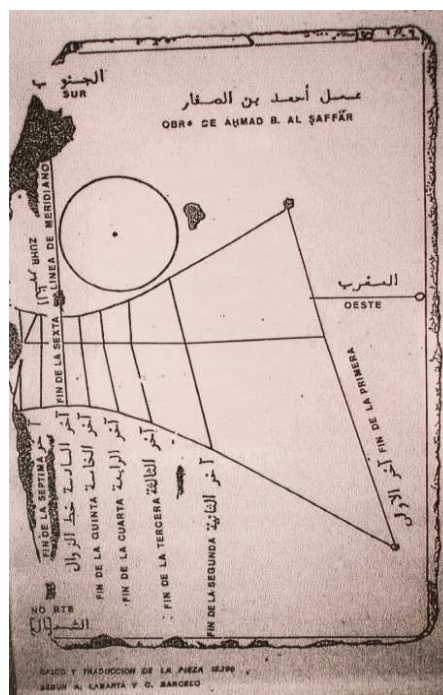 الجنوب
SUR
عمل أحمد بن الصفار
OBRA DE AḤMAD B. AL ṢAFFĀR
LINEA DE MERIDIANO
ZUHR
المغرب
OESTE
FIN DE LA SEPTIMA
آخر
FIN DE LA SEXTA
آخر السادسة خط الزوال
FIN DE LA QUINTA
آخر الخامسة
FIN DE LA CUARTA
آخر الرابعة
FIN DE LA TERCERA
آخر الثالثة
FIN DE LA SEGUNDA
آخر الثانية
FIN DE LA PRIMERA
آخر الاولى
NO RTE
الشم[ال]
CALCO Y TRADUCCION DE LA PIEZA
SEGUN A. LABARTA Y C. BARCELO